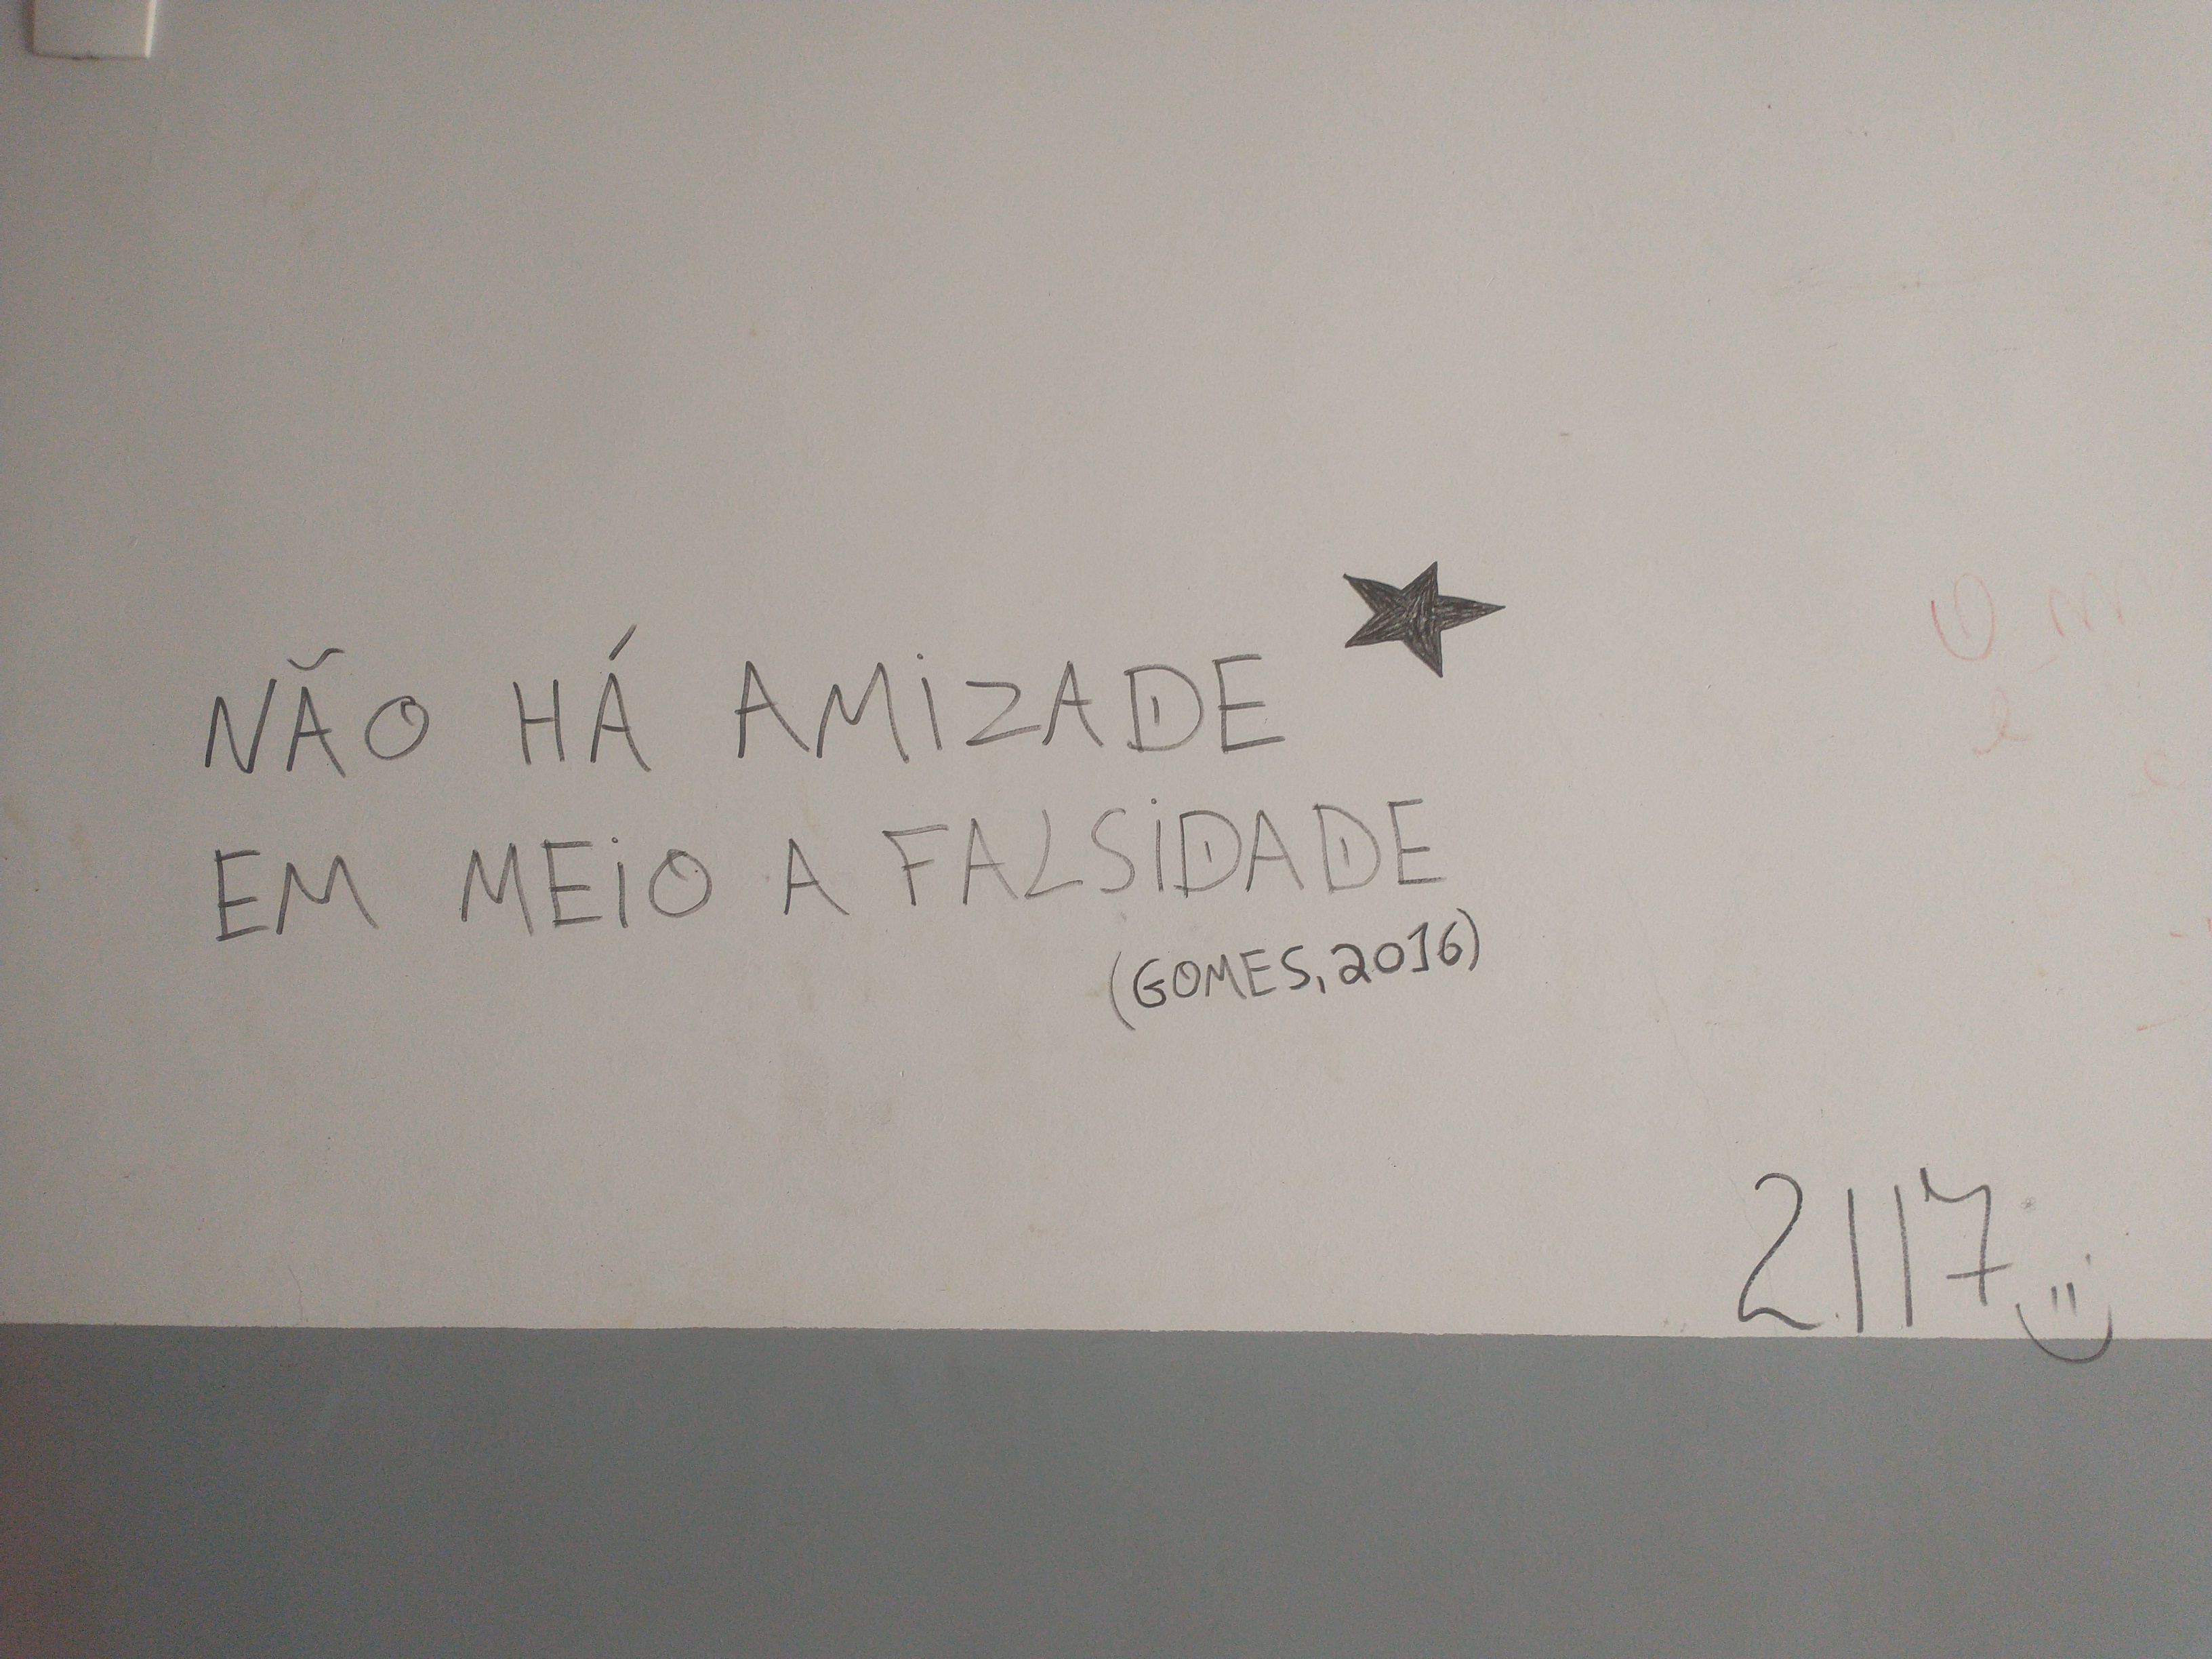 NÃO HÁ AMiZADE
EM MEiO A FALSiDADE
(GOMES, 2016)
2117